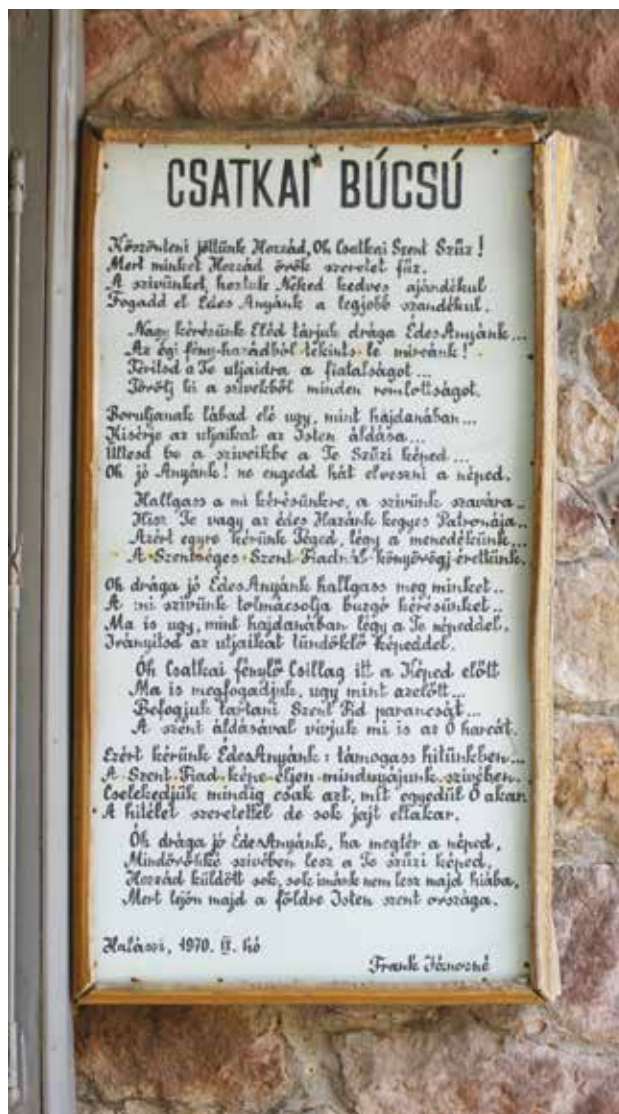 CSATKAI BÚCSÚ
Köszönteni jöttünk Hozzád, Oh Csatkai Szent Szűz!
Mert minket Hozzád örök szeretet fűz.
A szivünket, hoztuk Néked kedves ajándékul
Fogadd el Édes Anyánk a legjobb szándékul.
Nagy kérésünk Eléd tárjuk drága ÉdesAnyánk...
Az égi fény-hazádból tekints le miránk!
Téritsd a Te utjaidra a fiatalságot...
Törölj ki a szivekből minden romlottságot.
Boruljanak lábad elé ugy, mint hajdanában...
Kisérje az utjaikat az Isten áldása...
Ültesd be a sziveikbe a Te Szűzi képed...
Oh jó Anyánk! ne engedd hát elveszni a néped.
Hallgass a mi kérésünkre, a szivünk szavára..
Hisz Te vagy az édes Hazánk kegyes Patronája..
Azért egyre kérünk Téged, légy a menedékünk...
A Szentséges Szent Fiadnál könyörögj érettünk.
Oh drága jó ÉdesAnyánk hallgass meg minket..
A mi szivünk tolmácsolja buzgó kérésünket..
Ma is ugy, mint hajdanában légy a Te népeddel,
Irányitsd az utjaikat tündöklő képeddel.
Óh Csatkai fénylő Csillag itt a Képed előtt
Ma is megfogadjuk, ugy mint azelőtt...
Befogjuk tartani Szent Fid parancsát...
A szent áldásával vívjuk mi is az Ő harcát.
Ezért kérünk ÉdesAnyánk: támogass hitünkben...
A Szent Fiad képe éljen mindnyájunk szivében.
Cselekedjük mindig csak azt, mit egyedül Ő akar
A hitélet szeretettel de sok jajt eltakar.
Óh drága jó ÉdesAnyánk, ha megtér a néped,
Mindörökké szivében lesz a Te szűzi képed,
Hozzád küldött sok, sok imánk nem lesz majd hiába,
Mert eljön majd a földre Isten szent országa.
Halászi, 1970. hó
Frank Jánosné